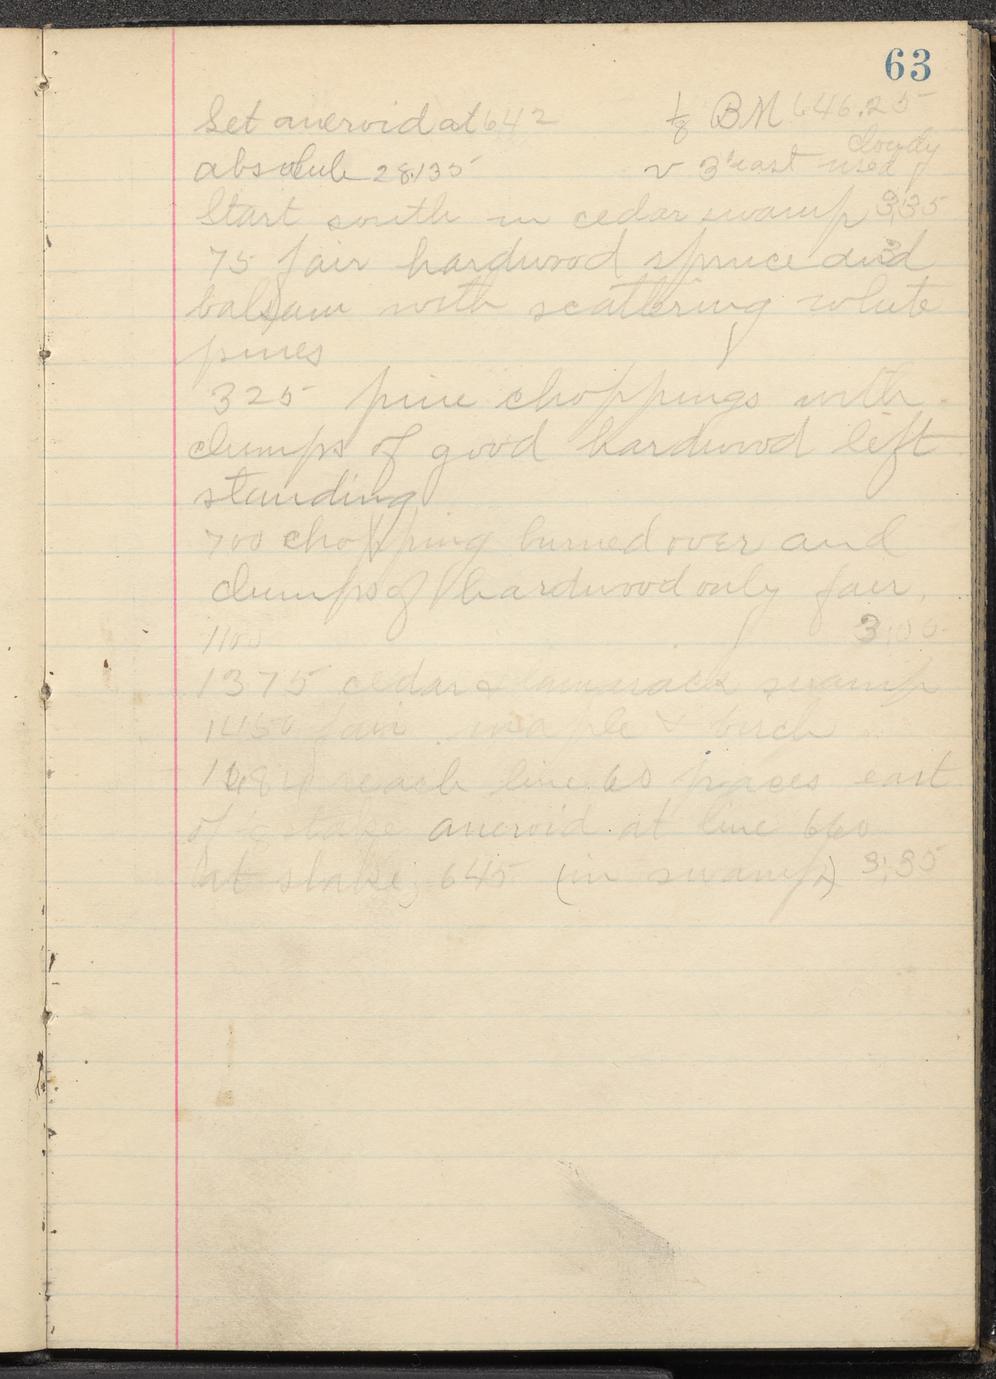 63
Set aneroid at 642 1/8 BM 646.25
cloudy
absolute 28.135 v 3" east used
Start south in cedar swamp 3.35
75 fair hardwood spruce and
balsam with scattering white
pines
325 pine choppings with
clumps of good hardwood left
standing
700 chopping burned over and
clumps of hardwood only fair.
1100 3.00
1375 cedar & tamarack swamp
1450 fair maple & birch
reach line 60 paces east
of 1/8 stake aneroid at line 660
at stake, 645 (in swamp) 3.35